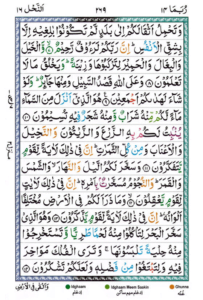 رُبَمَا ١٤ ٢٦٩ النَّحْل ١٦
وَتَحْمِلُ اَثْقَالَكُمْ اِلٰى بَلَدٍ لَّمْ تَكُوْنُوْا بٰلِغِيْهِ اِلَّا
بِشِقِّ الْاَنْفُسِ ؕ اِنَّ رَبَّكُمْ لَرَءُوْفٌ رَّحِيْمٌ ۙ وَّالْخَيْلَ
وَالْبِغَالَ وَالْحَمِيْرَ لِتَرْكَبُوْهَا وَزِيْنَةً ؕ وَيَخْلُقُ مَا لَا
تَعْلَمُوْنَ وَعَلَى اللّٰهِ قَصْدُ السَّبِيْلِ وَمِنْهَا جَآئِرٌ ؕ وَلَوْ
شَآءَ لَهَدٰىكُمْ اَجْمَعِيْنَ هُوَ الَّذِيْۤ اَنْزَلَ مِنَ السَّمَآءِ
مَآءً لَّكُمْ مِّنْهُ شَرَابٌ وَّمِنْهُ شَجَرٌ فِيْهِ تُسِيْمُوْنَ
يُنْۢبِتُ لَكُمْ بِهِ الزَّرْعَ وَالزَّيْتُوْنَ وَالنَّخِيْلَ
وَالْاَعْنَابَ وَمِنْ كُلِّ الثَّمَرٰتِ ؕ اِنَّ فِيْ ذٰلِكَ لَاٰيَةً لِّقَوْمٍ
يَّتَفَكَّرُوْنَ وَسَخَّرَ لَكُمُ الَّيْلَ وَالنَّهَارَ ۙ وَالشَّمْسَ
وَالْقَمَرَ ؕ وَالنُّجُوْمُ مُسَخَّرٰتٌۢ بِاَمْرِهٖ ؕ اِنَّ فِيْ ذٰلِكَ لَاٰيٰتٍ
لِّقَوْمٍ يَّعْقِلُوْنَ وَمَا ذَرَاَ لَكُمْ فِى الْاَرْضِ مُخْتَلِفًا
اَلْوَانُهٗ ؕ اِنَّ فِيْ ذٰلِكَ لَاٰيَةً لِّقَوْمٍ يَّذَّكَّرُوْنَ وَهُوَ الَّذِيْ
سَخَّرَ الْبَحْرَ لِتَاْكُلُوْا مِنْهُ لَحْمًا طَرِيًّا وَّتَسْتَخْرِجُوْا
مِنْهُ حِلْيَةً تَلْبَسُوْنَهَا ۚ وَتَرَى الْفُلْكَ مَوَاخِرَ
فِيْهِ وَلِتَبْتَغُوْا مِنْ فَضْلِهٖ وَلَعَلَّكُمْ تَشْكُرُوْنَ
Idghaam Idghaam Meem Saakin Ghunna
وَاَلْقٰى فِى الْاَرْضِ